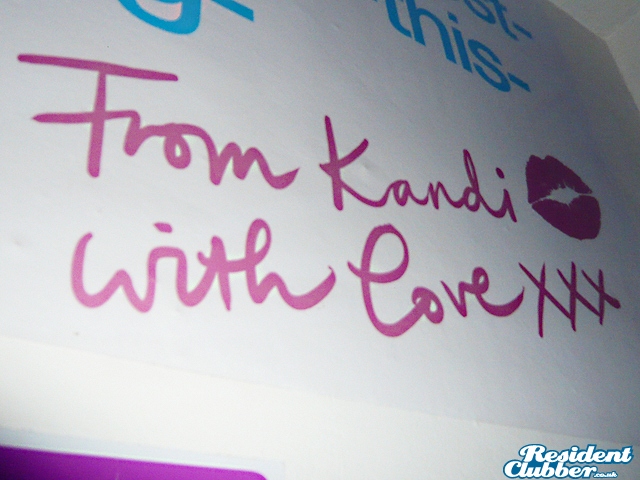 this-
From Kandi
with love xxx
Resident
Clubber.co.uk